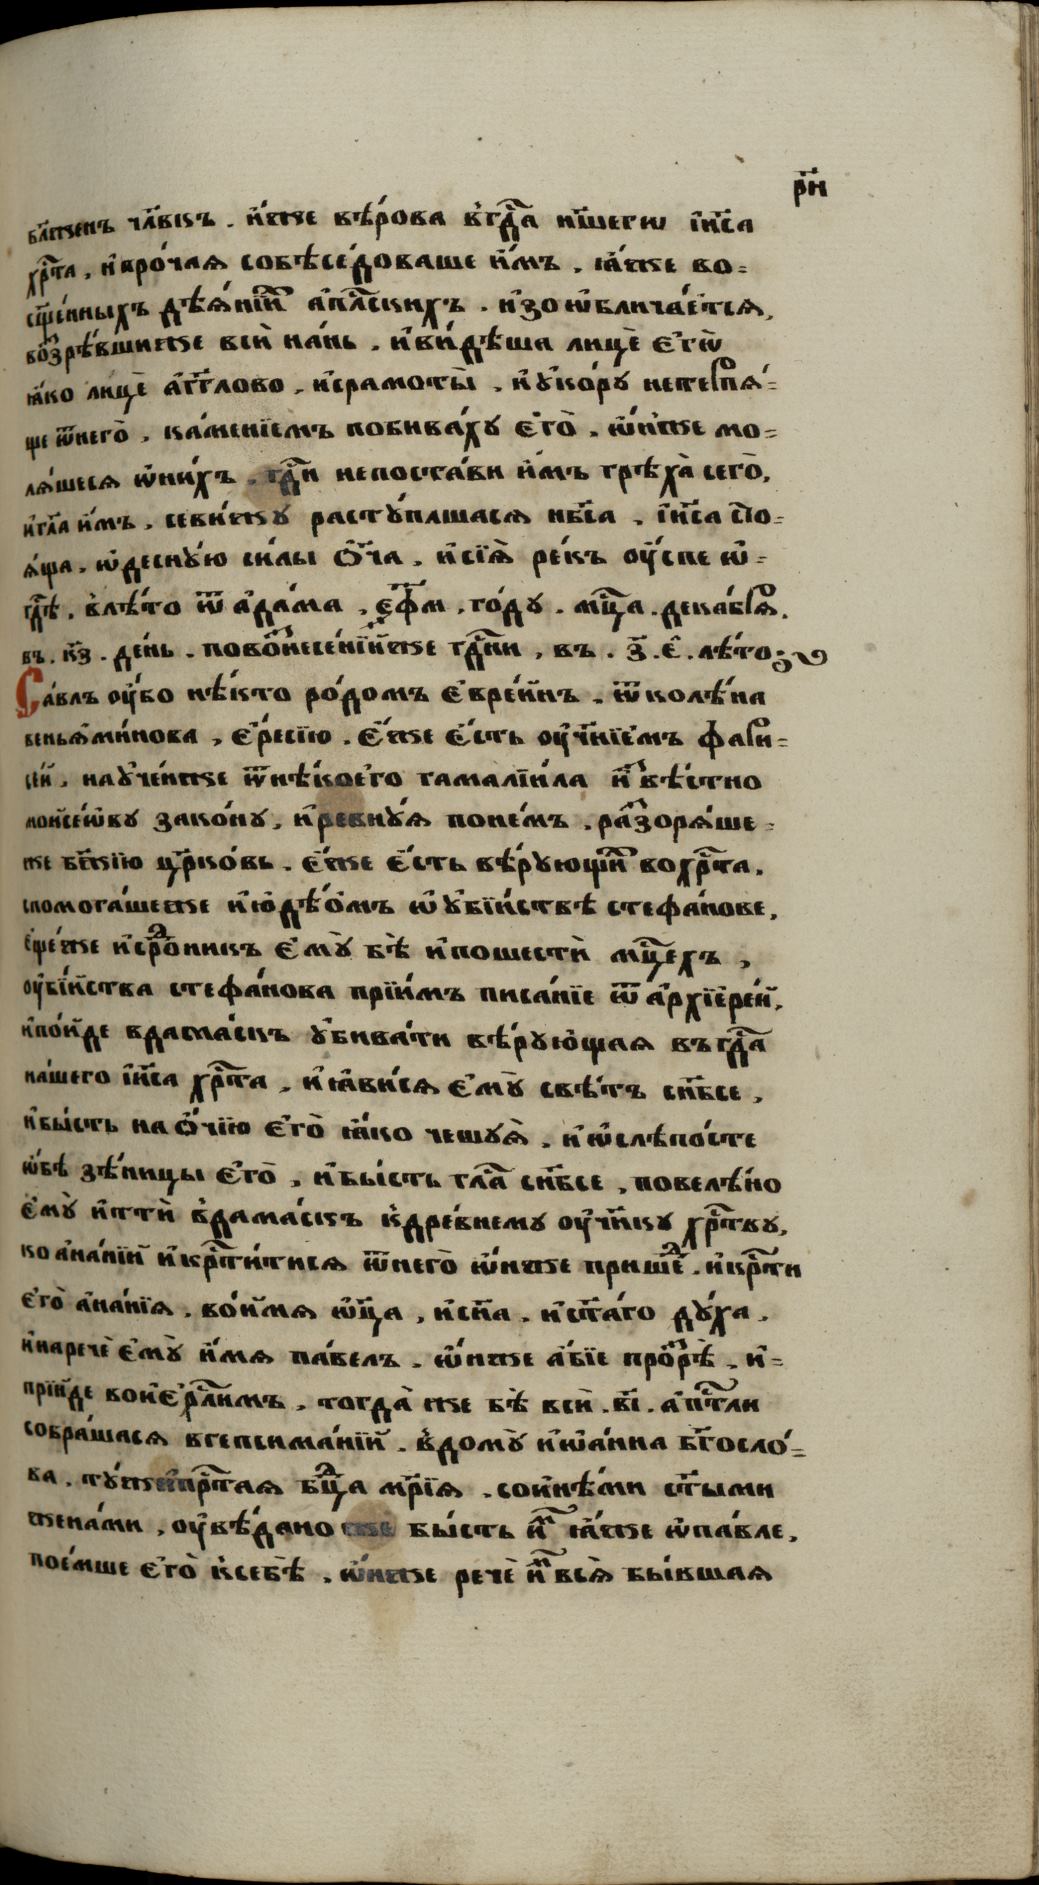 р҃н
бл҃женъ чл҃вкъ . и҆́же вѣ́рова в гдⷭ҇а нш҃егѡ і҆и҃са
хрⷭ҇та , и҆ про́чаѧ собѣсе́доваше и҆́мъ , ꙗ҆́же во=
сщ҃е́нныхъ дѣѧ́нїиⷯ а҆пⷭ҇льскихъ . и҆зоѡблича́етсѧ,
воⷥзрѣ́вшиже всѝ на́нь . и҆ ви́дѣша лицѐ є҆гѡ̀
ꙗ҆́ко лицѐ а҆́гг҃лово , и҆ срамоты̀ , и҆ оу҆ко́ру нетерпѧ́=
ще ѿ него̀ , ка́менїемъ побива́ху є҆го̀ . ѻ҆́нже мо=
лѧ́шесѧ ѡ҆ ни́хъ . гдⷭ҇и непоста́ви и҆́мъ грѣха̀ сего̀,
и҆ гл҃а и҆́мъ , се ви́жу расту́пльшасѧ нб҃са , і҆и҃са сто=
ѧ́ща . ѡ҆десну́ю си́лы ѻ҆ч҃а . и҆ сїѧ̀ ре́къ оу҆́спе ѡ҆=
гдⷭ҇ѣ . в лѣ́то ѿ а҆да́ма , ҂еф҃м , го́ду . мцⷭ҇а . декабрѧ .
въ . к҃з . де́нь . по вознесе́нїи́же гдⷭ҇ни , въ . з҃ . е҃ . лѣ́то
Са́влъ оу҆́бо нѣ́кто ро́домъ є҆вре́инъ . ѿ колѣ́на
веньѧми́нова , є҆́ресїю . є҆́же є҆́сть оу҆ч҃нїемъ фари=
се́й . науче́нже ѿ нѣ́коего гамалїи́ла и҆звѣ́стно
моисе́ѡву зако́ну , и҆ ревну́ѧ по не́мъ . разорѧ́ше=
же бж҃їю цр҃ко́вь . є҆́же є҆́сть вѣ́рующиⷯ во хрⷭ҇та .
спомога́шеже и҆ юдѣ́омъ ѡ҆ убїи́ствѣ стефа́нове,
є҆ще́же и҆ сро́дникъ є҆му̀ бѣ̀ и҆ по шестѝ мцⷭ҇ехъ ,
оу҆бїи́ства стефа́нова прїи́мъ писа́нїе ѿ а҆рхїере́й,
и҆ по́йде в дама́скъ убива́ти вѣ́рующаѧ въ гдⷭ҇а
на́шего і҆и҃са хрⷭ҇та , и҆ ꙗ҆ви́сѧ є҆му̀ свѣ́тъ с нб҃се ,
и҆ бы́сть на ѻ҆́чїю є҆го̀ ꙗ҆́ко чешуѧ̀ . и҆ ѡ҆слѣпо́сте
ѻ҆́бѣ зѣ́ницы є҆го̀ , и҆ бы́сть гла́съ с нб҃се , повелѣ́но
є҆му̀ и҆ттѝ в дама́скъ к дре́внему оу҆ч҃нку хрⷭ҇тву,
ко а҆на́нїи и҆ крⷭ҇ти́тисѧ ѿ него̀ ѻ҆́нже прише́дъ . и҆ крⷭ҇ти
є҆го̀ а҆на́нїѧ . во и҆́мѧ ѻ҆ц҃а , и҆ сн҃а , и҆ ст҃а́го ду́ха .
и҆ наречѐ є҆му̀ и҆́мѧ па́велъ . ѻ҆́нже а҆́бїе прозрѣ̀ . и҆=
прїи́де во иерⷭ҇ли́мъ , тогда̀ же бѣ̀ всѝ . в҃і . а҆пⷭ҇тли
собра́шасѧ в гепсима́нїи . в дому̀ и҆ ѡ҆а́нна бг҃осло́=
ва . ту́же и҆ прⷭ҇таѧ бц҃а мр҃їѧ . со и҆нѣ́ми ст҃ыми
жена́ми , оу҆вѣ́дано же бы́сть и҆мъ ꙗ҆́же ѡ҆ па́вле,
пое́мше є҆го̀ к себѣ̀ . ѻ҆́нже речѐ и҆мъ всѧ̀ бы́вшаѧ